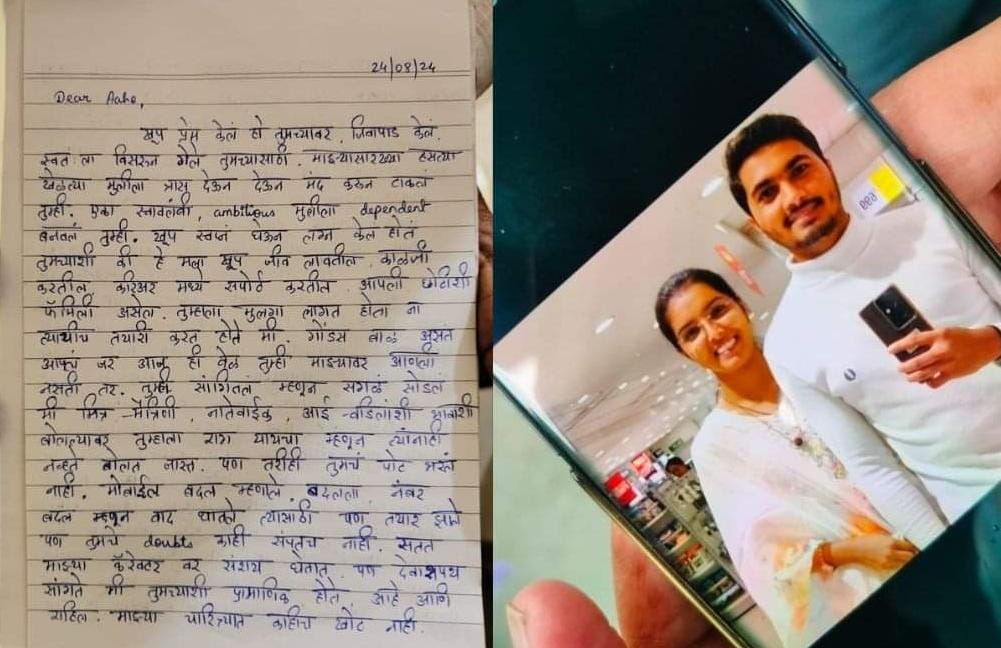 24/08/24
Dear Aaho,
खूप प्रेम केलं हो तुमच्यावर. जिवापाड केलं.
स्वतःला विसरून गेले तुमच्यासाठी. माझ्यासारख्या हसत्या
खेळत्या मुलीला त्रास देऊन देऊन मंद करुन टाकलं
तुम्ही. एका स्वावलंबी, ambitious मुलीला dependent
बनवलं तुम्ही. खूप स्वप्नं घेऊन लग्न केल होतं
तुमच्याशी की हे मला खूप जीव लावतील, काळजी
करतील, करिअर मध्ये सपोर्ट करतील. आपली छोटीशी
फॅमिली असेल. तुम्हाला मुलगा लागत होता ना
त्याचीच तयारी करत होते मी. गोंडस बाळ असतं
आपलं जर आज ही वेळ तुम्ही माझ्यावर आणली
नसती तर. तुम्ही सांगितलं म्हणून सगळं सोडलं
मी मित्र-मैत्रिणी, नातेवाईक, आई-वडिलांशी भावाशी
बोलल्यावर तुम्हाला राग यायचा म्हणून त्यांनाही
नव्हते बोलत जास्त. पण तरीही तुमचं पोट भरलं
नाही. मोबाईल बदल म्हणाले, बदलला, नंबर
बदल म्हणून वाद घातले त्यासाठी पण तयार झाले
पण तुमचे doubts काही संपतच नाही. सतत
माझ्या कॅरेक्टर वर संशय घेतात. पण देवाशपथ
सांगते मी तुमच्याशी प्रामाणिक होते, आहे आणि
राहिल. माझ्या चारित्र्यात काहीच खोट नाही.